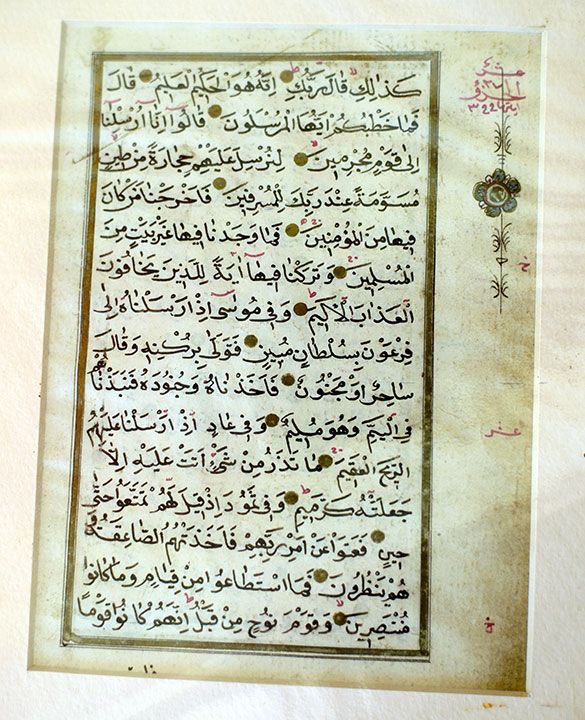 كَذٰلِكِ قَالَ رَبُّكِ اِنَّهُ هُوَ الْحَكِيمُ الْعَلِيمُ قَالَ
فَمَا خَطْبُكُمْ اَيُّهَا الْمُرْسَلُونَ قَالُوا اِنَّا اُرْسِلْنَا
اِلٰى قَوْمٍ مُجْرِمِينَ لِنُرْسِلَ عَلَيْهِمْ حِجَارَةً مِنْ طِينٍ
مُسَوَّمَةً عِنْدَ رَبِّكَ لِلْمُسْرِفِينَ فَاَخْرَجْنَا مَنْ كَانَ
فِيهَا مِنَ الْمُؤْمِنِينَ فَمَا وَجَدْنَا فِيهَا غَيْرَ بَيْتٍ مِنَ
الْمُسْلِمِينَ وَتَرَكْنَا فِيهَا اٰيَةً لِلَّذِينَ يَخَافُونَ
الْعَذَابَ الْاَلِيمَ وَفِي مُوسٰى اِذْ اَرْسَلْنَاهُ اِلٰى
فِرْعَوْنَ بِسُلْطَانٍ مُبِينٍ فَتَوَلّٰى بِرُكْنِهِ وَقَالَ
سَاحِرٌ اَوْ مَجْنُونٌ فَاَخَذْنَاهُ وَجُنُودَهُ فَنَبَذْنَاهُمْ
فِي الْيَمِّ وَهُوَ مُلِيمٌ وَفِي عَادٍ اِذْ اَرْسَلْنَا عَلَيْهِمُ
الرِّيحَ الْعَقِيمَ مَا تَذَرُ مِنْ شَيْءٍ اَتَتْ عَلَيْهِ اِلَّا
جَعَلَتْهُ كَالرَّمِيمِ وَفِي ثَمُودَ اِذْ قِيلَ لَهُمْ تَمَتَّعُوا حَتّٰى
حِينٍ فَعَتَوْا عَنْ اَمْرِ رَبِّهِمْ فَاَخَذَتْهُمُ الصَّاعِقَةُ وَ
هُمْ يَنْظُرُونَ فَمَا اسْتَطَاعُوا مِنْ قِيَامٍ وَمَا كَانُوا
مُنْتَصِرِينَ وَقَوْمَ نُوحٍ مِنْ قَبْلُ اِنَّهُمْ كَانُوا قَوْمًا